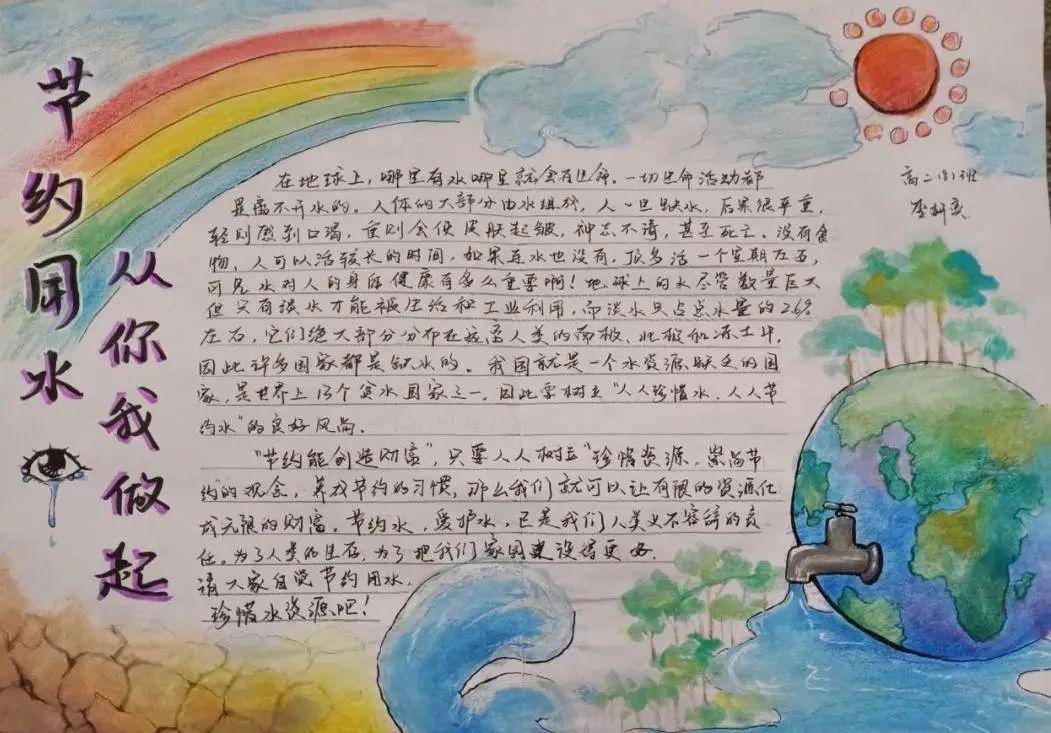 节约用水
从你我做起
高二(3)班
在地球上，哪里有水哪里就会有生命。一切生命活动都
是离不开水的。人体的大部分由水组成，人一旦缺水，后果很严重，
轻则感到口渴，重则会使皮肤起皱，神志不清，甚至死亡。没有食
物，人可以活较长的时间，如果连水也没有，顶多活一个星期左右，
可见水对人的身体健康有多么重要啊！地球上的水尽管数量巨大
但只有淡水才能被生活和工业利用，而淡水只占总水量的2.6%
左右，它们绝大部分分布在远离人类的南极、北极和冻土中，
因此许多国家都是缺水的。我国就是一个水资源缺乏的国
家，是世界上13个贫水国家之一，因此要树立“人人珍惜水，人人节
约水”的良好风尚。
“节约能创造财富”，只要人人树立“珍惜资源，崇尚节
约”的观念，养成节约的习惯，那么我们就可以让有限的资源化
成无限的财富。节约水，爱护水，已是我们人类义不容辞的责
任。为了人类的生存，为了把我们家园建设得更好，
请大家自觉节约用水，
珍惜水资源吧！